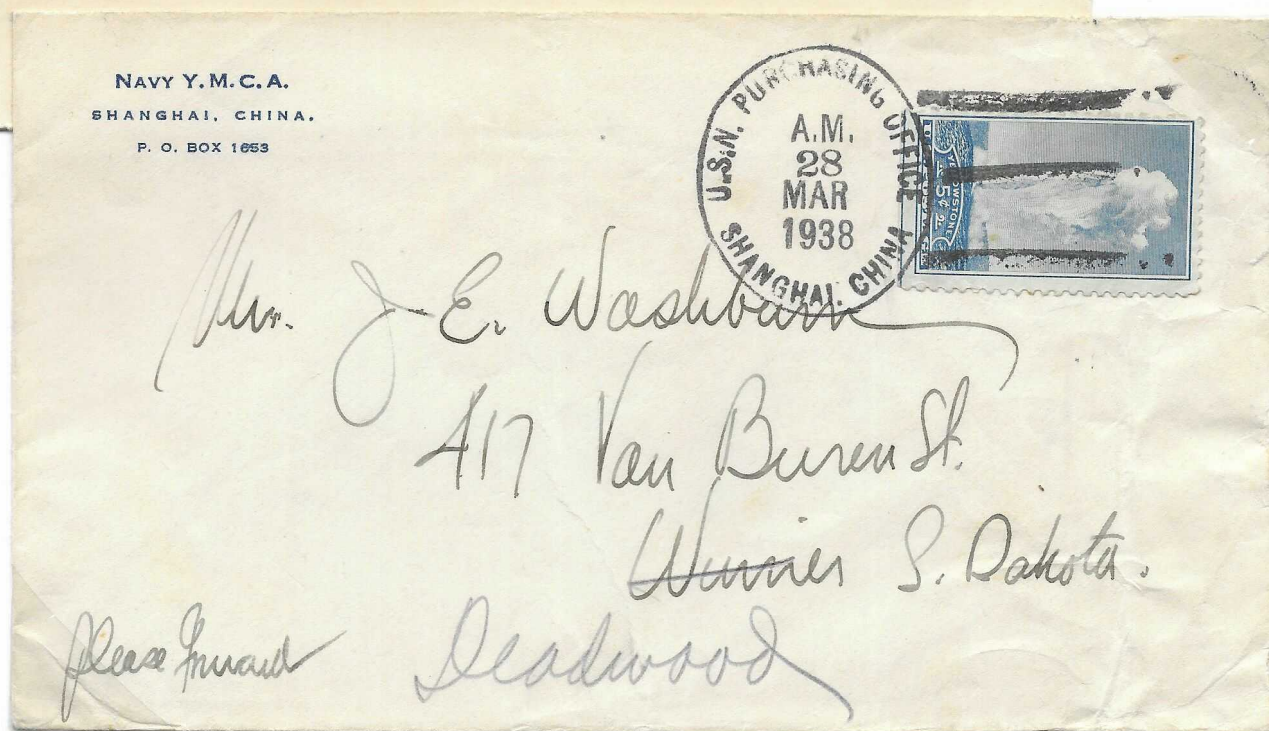 NAVY Y.M.C.A.
SHANGHAI, CHINA.
P. O. BOX 1653
U.S.N. PURCHASING OFFICE
A.M.
28
MAR
1938
SHANGHAI. CHINA
5¢
Mr. J. E. Washburn
417 Van Buren St.
S. Dakota.
Please Forward
Deadwood